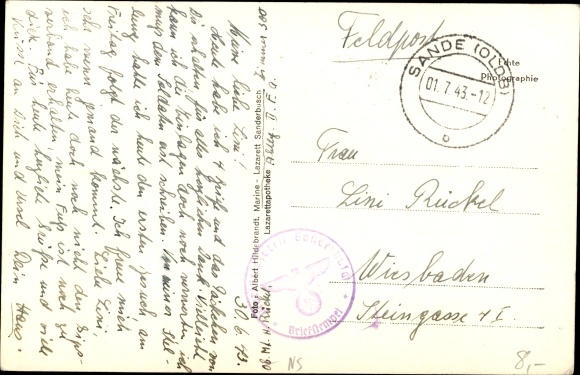 30.6.43.
Meine liebe Lini!
Heute habe ich 4 und das Päckchen von
Dir erhalten, für alles herzlichen Dank. Vielleicht
kann ich die Einlagen doch noch verwerten, ich
muß den Soldaten erst schreiben. In unserer Stel-
lung hatte ich heute den ersten Besuch am
Freitag folgt der nächste. Ich freue mich
sehr wenn jemand kommt. Liebe Lini
ich habe heute doch noch nicht den Gips-
verband erhalten, mein Fuß ist noch zu
dick. Für heute herzliche Grüße und viele
Küsse an Dich und Dein Hans.
Foto: Albert Hildebrandt, Marine-Lazarett Sanderbusch
Lazarettapotheke
Echte
Photographie
Feldpost
SANDE (OLDB)
01.7.43.-12
b
Frau
Lini Rückel
Wiesbaden
Steingasse 4 I.
Briefstempel
NS
8,-